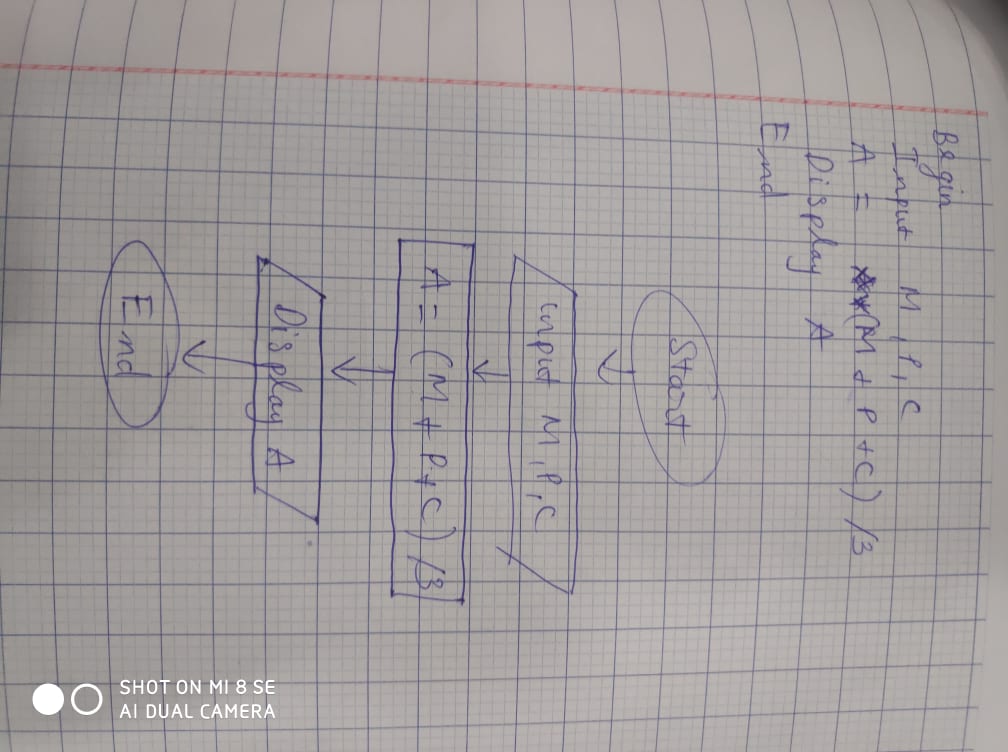 Begin
Input M, P, C
A = (M + P + C) /3
Display A
End
Start
input M, P, C
A = (M + P + C) /3
Display A
End
SHOT ON MI 8 SE
AI DUAL CAMERA